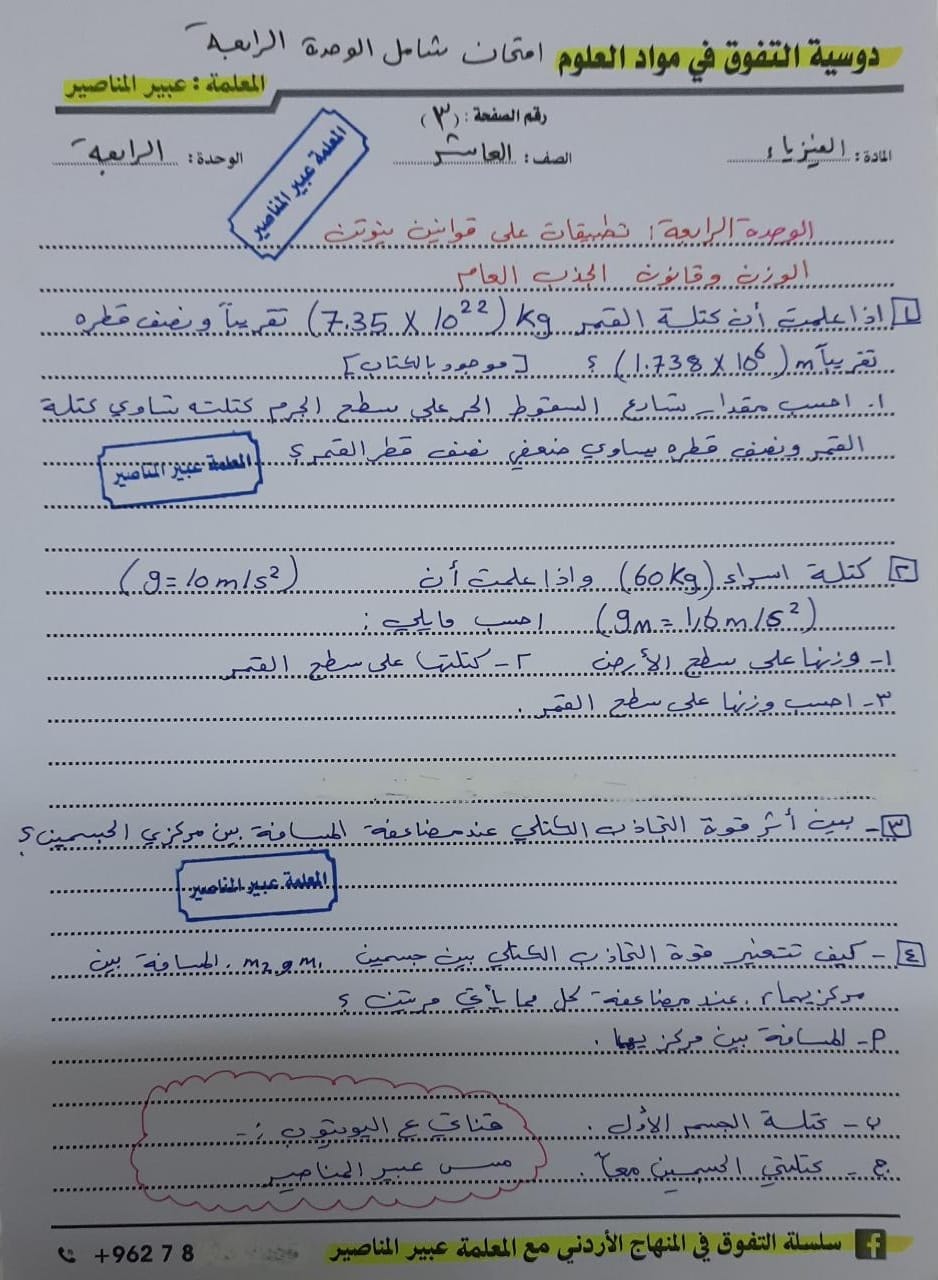 دوسية التفوق في مواد العلوم امتحان شامل الوحدة الرابعة
المعلمة : عبير المناصير
رقم الصفحة : (٣)
المادة : الفيزياء الصف : العاشر الوحدة : الرابعة
المعلمة عبير المناصير
الوحدة الرابعة : تطبيقات على قوانين نيوتن
الوزن وقانون الجذب العام
١ اذا علمت أن كتلة القمر (7.35 X 10²²) kg تقريباً ونصف قطره
تقريباً m (1.738 X 10⁶) ؟ [موجود بالكتاب]
١. احسب مقدار تسارع السقوط الحر على سطح الجرم كتلته تساوي كتلة
القمر ونصف قطره يساوي ضعفي نصف قطر القمر ؟
المعلمة عبير المناصير
٢ كتلة اسراء (60 kg) واذا علمت أن (g = 10 m/s²)
(gm = 1,6 m/s²) احسب مايلي :
١- وزنها على سطح الأرض ٢- كتلتها على سطح القمر
٣- احسب وزنها على سطح القمر .
٣- بين أثر قوة التجاذب الكتلي عند مضاعفة المسافة بين مركزي الجسمين ؟
المعلمة عبير المناصير
٤- كيف تتغير قوة التجاذب الكتلي بين جسمين m₁ و m₂ . المسافة بين
مركزيهما r . عند مضاعفة كل مما يأتي مرتين ؟
أ- المسافة بين مركزيهما .
ب- كتلة الجسم الأول .
قناتي ع اليوتيوب :-
ج- كتلتي الجسمين معاً .
مس عبير المناصير
سلسلة التفوق في المنهاج الأردني مع المعلمة عبير المناصير
+962 7 8